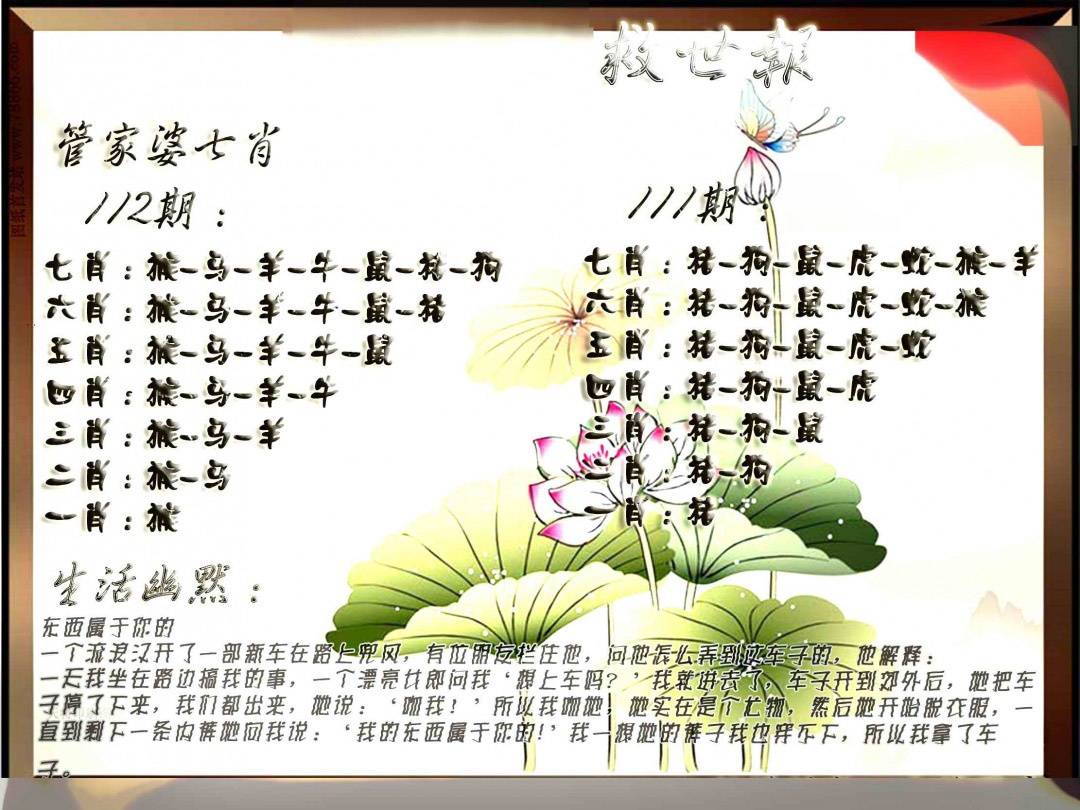 救世報
管家婆七肖
112期：
七肖：猴-马-羊-牛-鼠-猪-狗
六肖：猴-马-羊-牛-鼠-猪
五肖：猴-马-羊-牛-鼠
四肖：猴-马-羊-牛
三肖：猴-马-羊
二肖：猴-马
一肖：猴
111期：
七肖：猪-狗-鼠-虎-蛇-猴-羊
六肖：猪-狗-鼠-虎-蛇-猴
五肖：猪-狗-鼠-虎-蛇
四肖：猪-狗-鼠-虎
三肖：猪-狗-鼠
二肖：猪-狗
一肖：猪
生活幽默：
东西属于你的
一个流浪汉开了一部新车在路上兜风，有位朋友拦住他，问他怎么弄到这车子的，他解释：
一天我坐在路边搞我的事，一个漂亮女郎问我‘想上车吗？’我就进去了，车子开到郊外后，她把车
子停了下来，我们都出来，她说：‘吻我！’所以我吻她，她实在是个尤物，然后她开始脱衣服，一
直到剩下一条内裤她向我说：‘我的东西属于你的！’我一想她的裤子我也穿不下，所以我拿了车
子。